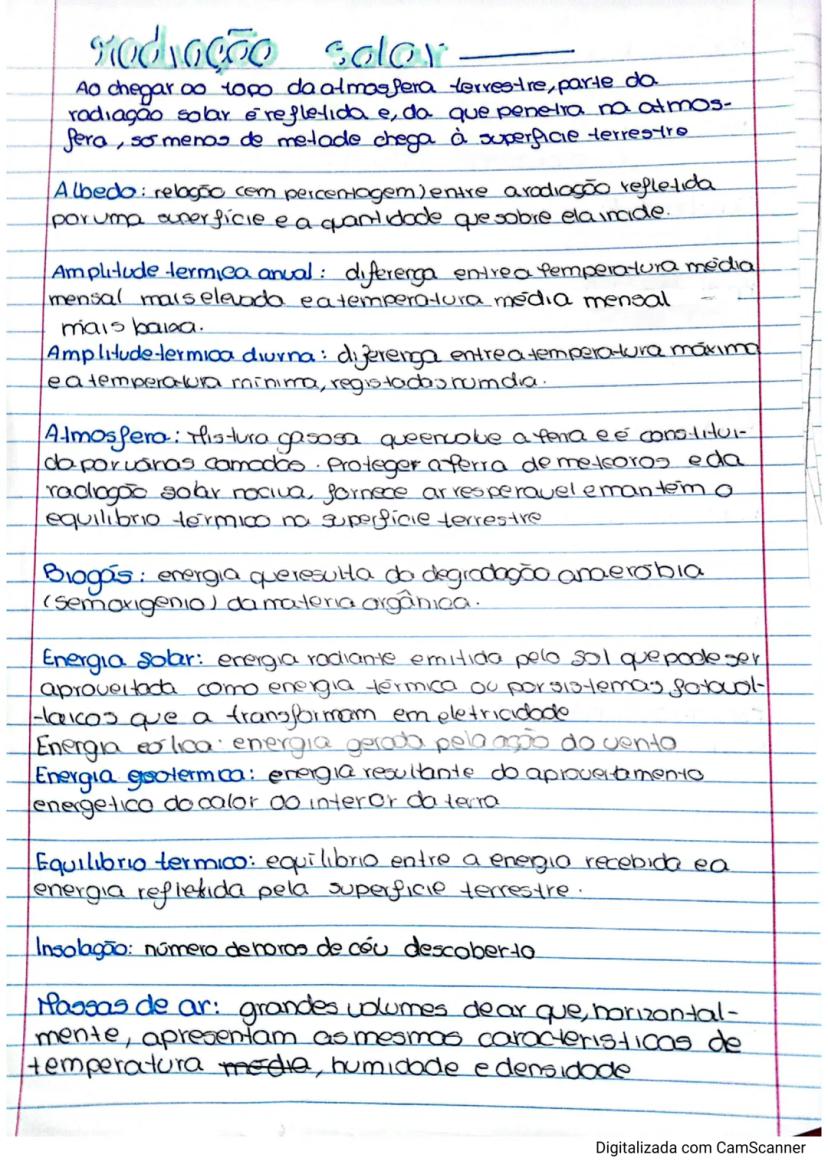 radiação solar
Ao chegar ao topo da atmosfera terrestre, parte da
radiação solar é refletida e, da que penetra na atmos-
fera, só menos de metade chega à superfície terrestre
Albedo: relação (em percentagem) entre a radiação refletida
por uma superfície e a quantidade que sobre ela incide.
Amplitude termica anual: diferença entre a temperatura média
mensal mais elevada e a temperatura média mensal
mais baixa.
Amplitude termica diurna: diferença entre a temperatura máxima
e a temperatura mínima, registadas num dia.
Atmosfera: Mistura gasosa que envolve a terra e é constitui-
da por várias camadas. Proteger a terra de meteoros e da
radiação solar nociva, fornece ar resperavel e mantém o
equilíbrio térmico na superfície terrestre
Biogás: energia que resulta da degradação anaeróbia
(sem oxigénio) da matéria orgânica.
Energia solar: energia radiante emitida pelo sol que pode ser
aproveitada como energia térmica ou por sistemas fotovol-
-taicos que a transformam em eletricidade
Energia eólica: energia gerada pela ação do vento
Energia geotermica: energia resultante do aproveitamento
energetico do calor do interor da terra
Equilibrio termico: equílibrio entre a energia recebida e a
energia refletida pela superfície terrestre.
Insolação: número de horas de céu descoberto
Massas de ar: grandes volumes de ar que, horizontal-
mente, apresentam as mesmas caracteristicas de
temperatura media, humidade e densidade
Digitalizada com CamScanner